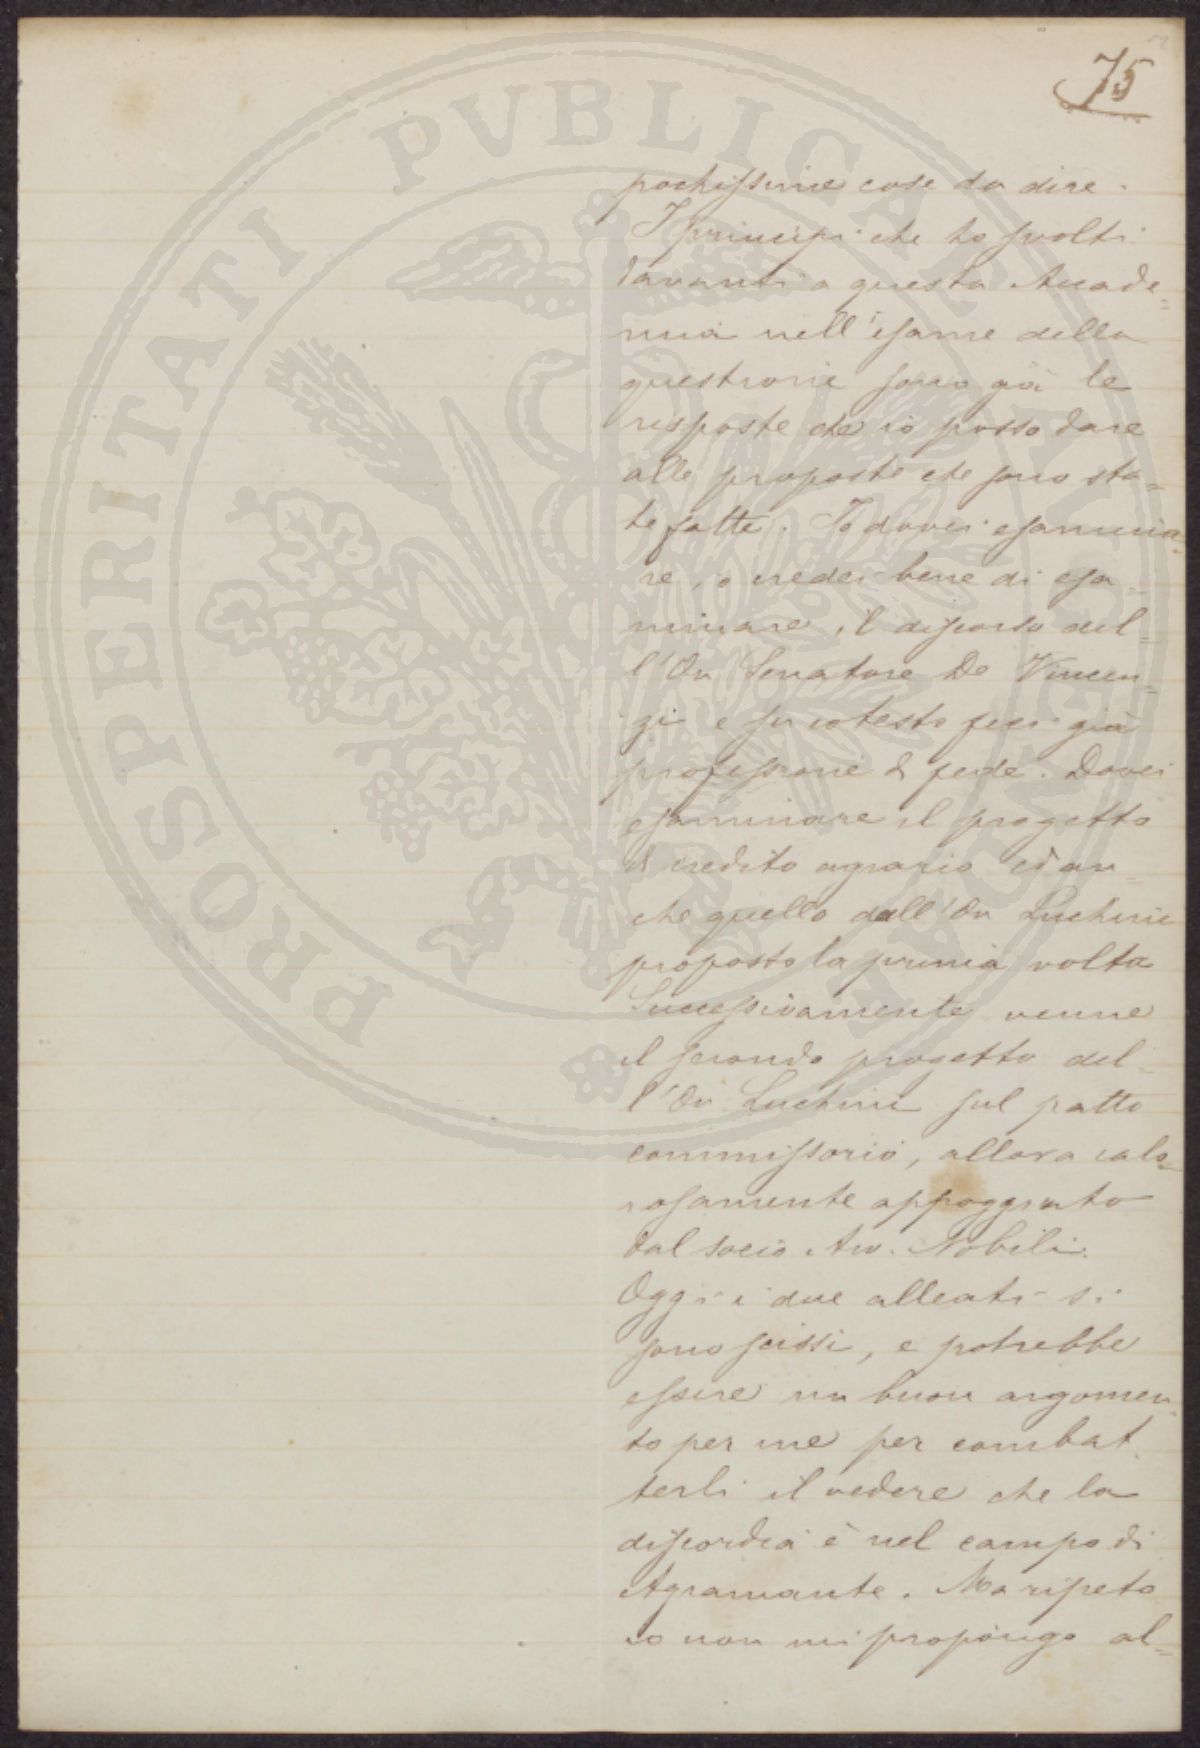 75
pochissime cose da dire.
I principi che ho svolti
davanti a questa Accade=
mia nell'esame della
questione sono già le
risposte che io posso dare
alle proposte che sono sta=
te fatte. Io dovei esamina=
re, o credei bene di esa=
minare, il discorso del=
l'On Senatore De Vincen=
zi e su cotesto feci già
professione di fede. Dovei
esaminare il progetto
di credito agrario ed an=
che quello dell'On Luchini
proposto la prima volta
Successivamente venne
il secondo progetto del=
l'On Luchini sul patto
commissorio, allora calo=
rosamente appoggiato
dal socio Avv. Nobili.
Oggi i due alleati si
sono scissi, e potrebbe
essere un buon argomen=
to per me per combat=
terli il vedere che la
discordia è nel campo di
Agramante. Ma ripeto
io non mi propongo al=
PROSPERITATI PVBLICAE AVGENDAE